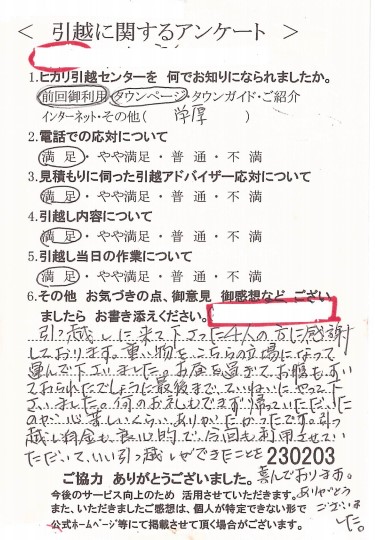 < 引越に関するアンケート >
1.ヒカリ引越センターを 何でお知りになられましたか。
前回御利用・タウンページ・タウンガイド・ご紹介
インターネット・その他( )
2.電話での応対について
満 足 ・ やや満足 ・ 普 通 ・ 不 満
3.見積もりに伺った引越アドバイザー応対について
満 足 ・ やや満足 ・ 普 通 ・ 不 満
4.引越し内容について
満 足 ・ やや満足 ・ 普 通 ・ 不 満
5.引越し当日の作業について
満 足 ・ やや満足 ・ 普 通 ・ 不 満
6.その他 お気づきの点、御意見 御感想など ござい
ましたら お書き添えください。
引っ越しに来て下さった4人の方に感謝
しております。重い物をこちらの立場になって
運んで下さいました。お昼も過ぎてお腹もすい
ておられたでしょうに最後までていねいにやって下
さいました。何のお礼もできず帰っていただいた
のが心苦しいくらいありがたかったです。引っ
越し料金も良心的で、今回も利用させてい
ただいて、いい引っ越しができたことを
230203
喜んでおります。
ご協力 ありがとうございました。
今後のサービス向上のため 活用させていただきます。
ありがとう
また、いただきましたご感想は、個人が特定できない形で
ございま
公式ホームページ等にて掲載させて頂く場合がございます。
した。